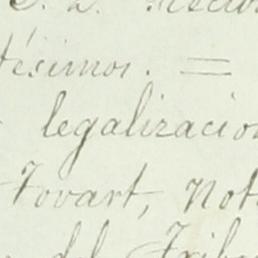 tésimos. =
legalizacion
Tovart, Not
del Tribu